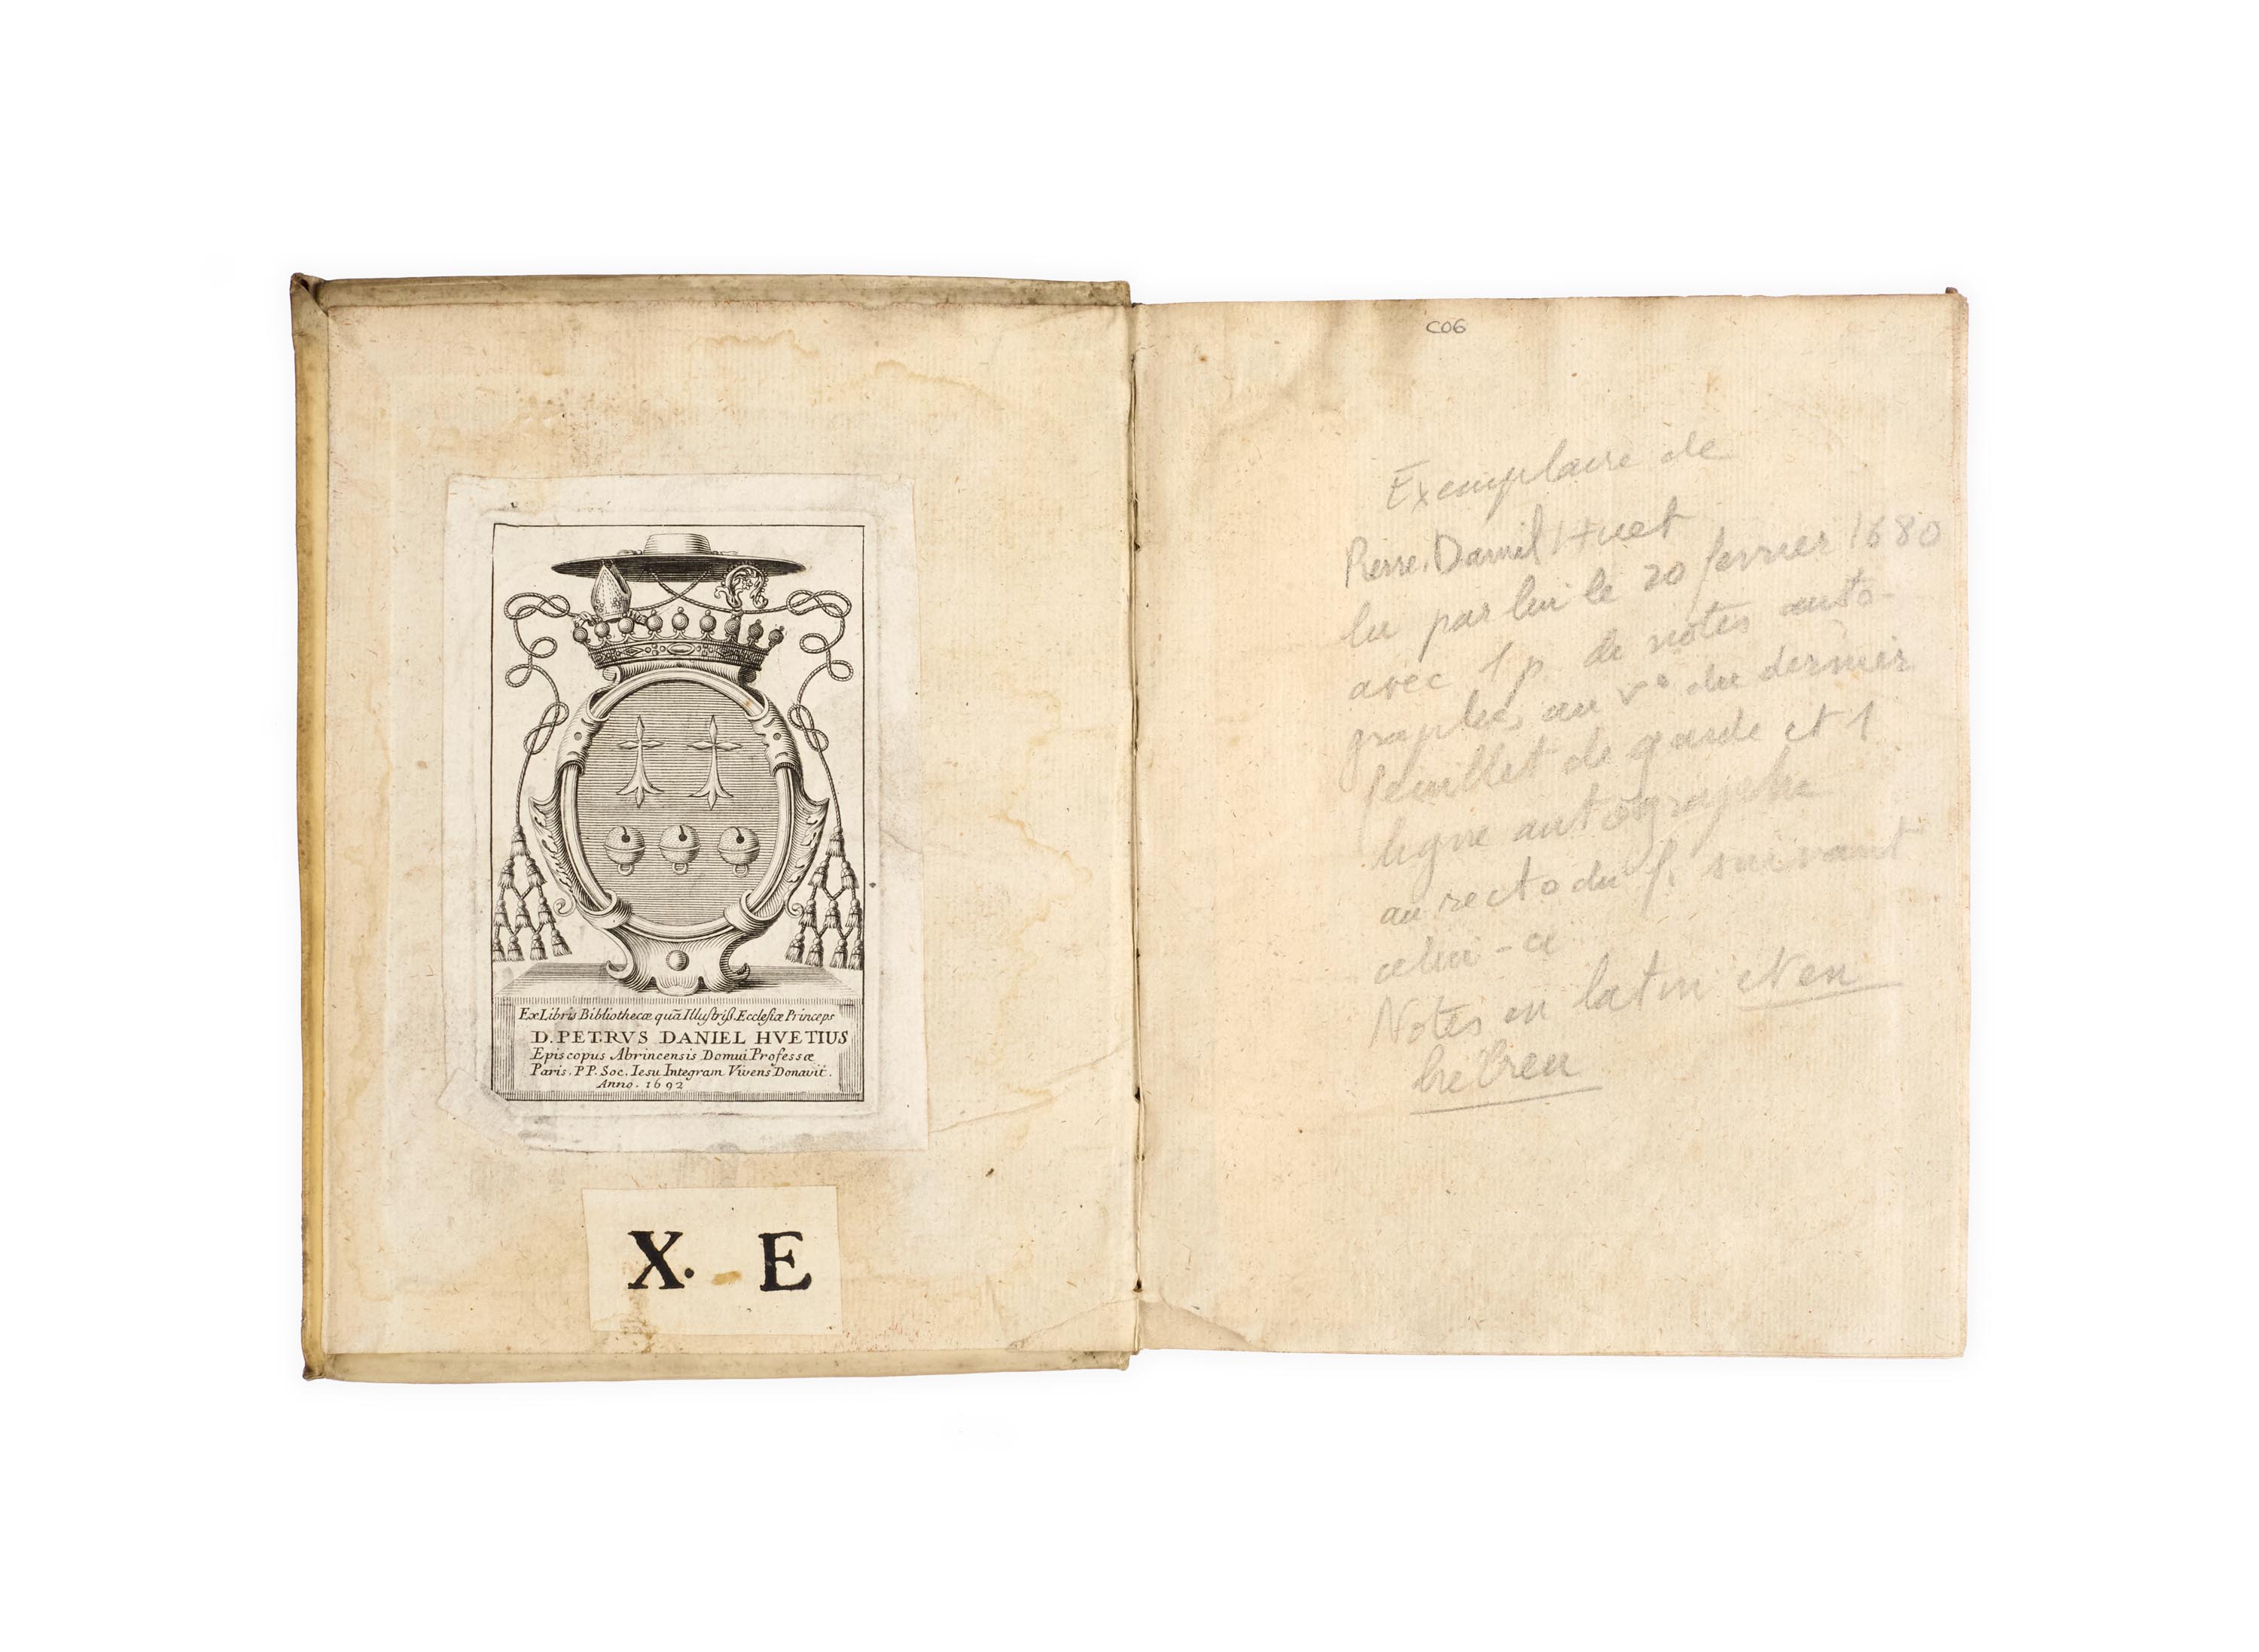 Ex Libris Bibliothecæ quã Illustriß. Ecclesiæ Princeps
D. PETRVS DANIEL HVETIUS
Episcopus Abrincensis Domui Professæ
Paris. PP. Soc. Iesu Integram Vivens Donavit.
Anno. 1692
X. E
C06
Exemplaire de
Pierre.Daniel Huet
lu par lui le 20 fevrier 1680
avec 1 p. de notes auto-
graphes au v° du dernier
feuillet de garde et 1
ligne autographe
au recto du f. suivant
celui-ci
Notes en latin et en
hébreu